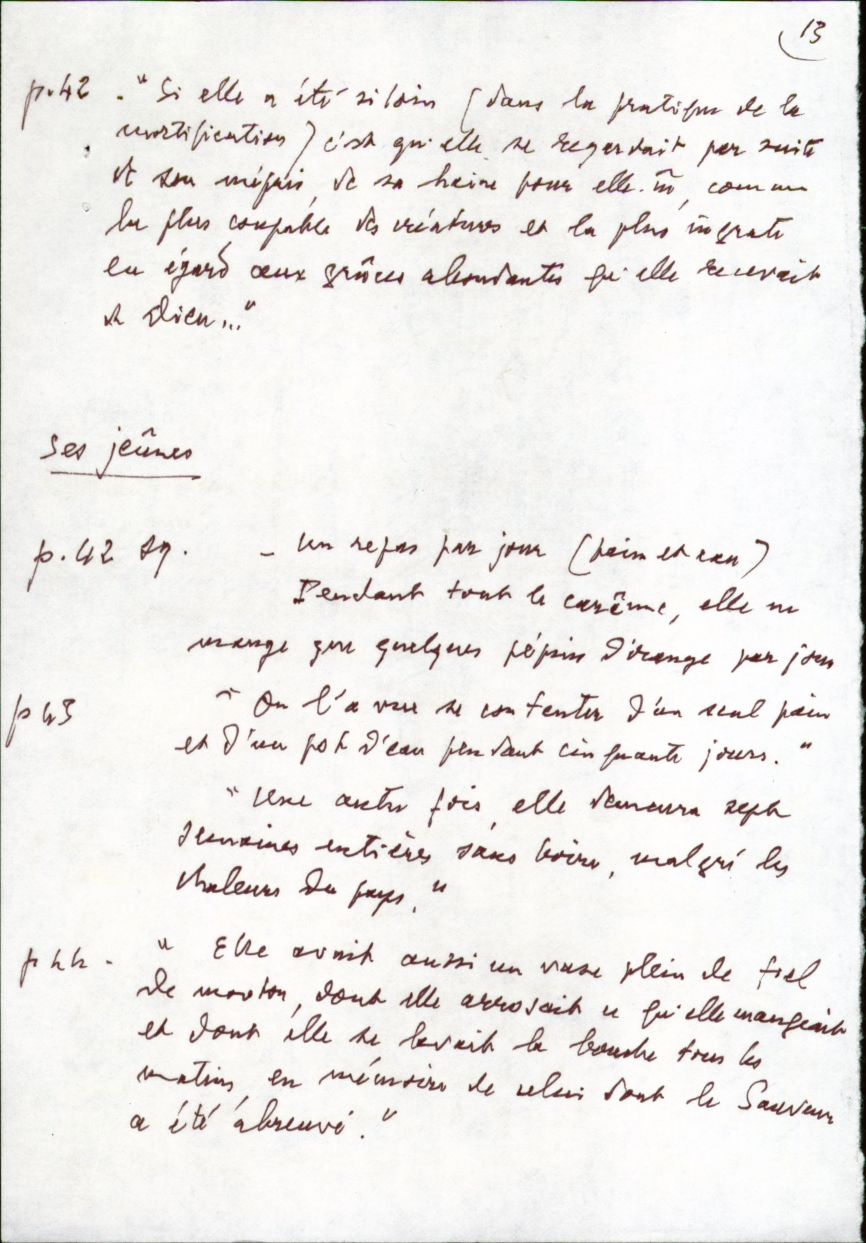 13
p.42 . " Si elle a été si loin (dans la pratique de la
mortification) c'est qu'elle se regardait par suite
de son mépris, de sa haine pour elle-m̂, comme
la plus coupable des créatures et la plus ingrate
eu égard aux grâces abondantes qu'elle recevait
de Dieu..."
Ses jeûnes
p.42 sq. - un repas par jour (pain et eau)
Pendant tout le carême, elle ne
mange que quelques pépins d'orange par jour
p 43 " On l'a vue se contenter d'un seul pain
et d'un pot d'eau pendant cinquante jours."
" Une autre fois, elle demeura sept
semaines entières sans boire, malgré les
chaleurs du pays."
p 44 - " Elle avait aussi un vase plein de fiel
de mouton, dont elle arrosait ce qu'elle mangeait
et dont elle se lavait la bouche tous les
matins, en mémoire de celui dont le Sauveur
a été abreuvé."